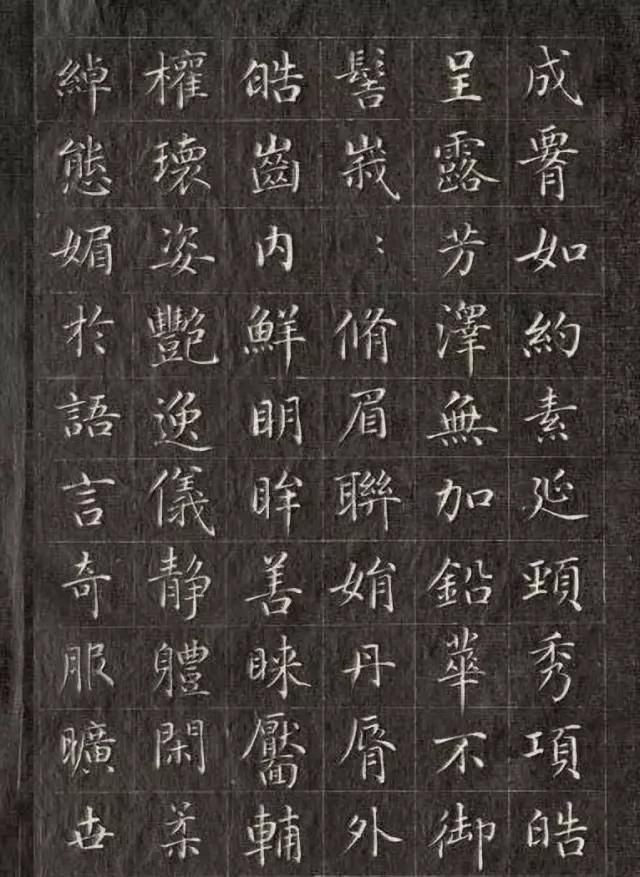 成霄如約素延頸秀項皓
呈露芳澤無加鉛華不御
髻峩〻脩眉聯娟丹脣外
皓齒內鮮明眸善睞靨輔
權瓌姿艷逸儀靜體閑柔
綽態媚於語言奇服曠世